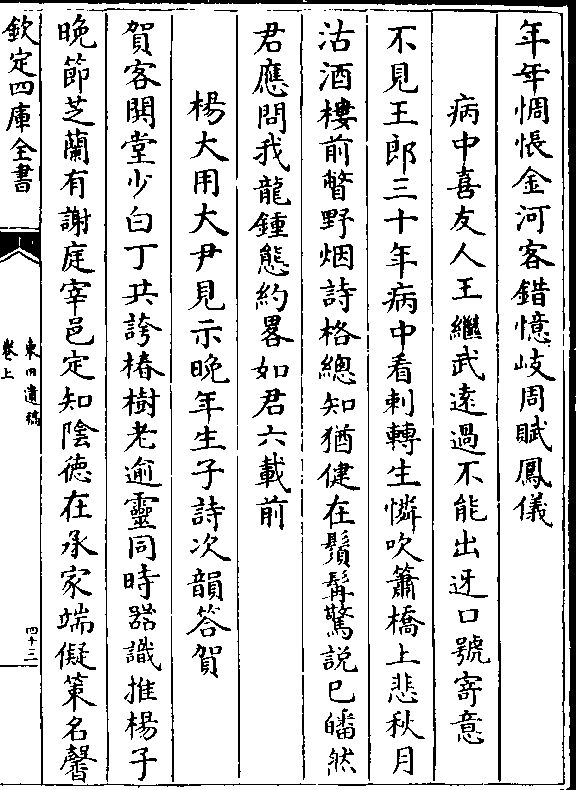 年年惆悵金河客錯憶岐周賦鳳儀
病中喜友人王繼武遠過不能出迓口號寄意
不見王郎三十年病中看刺轉生憐吹簫橋上悲秋月
沽酒樓前瞥野烟詩格總知猶健在鬚髯驚說已皤然
君應問我龍鍾態約畧如君六載前
楊大用大尹見示晚年生子詩次韻答賀
賀客闐堂少白丁共誇椿樹老逾靈同時器識推楊子
晚節芝蘭有謝庭宰邑定知陰徳在承家端儗策名馨
欽定四庫全書
東田遺稿
卷上
四十三